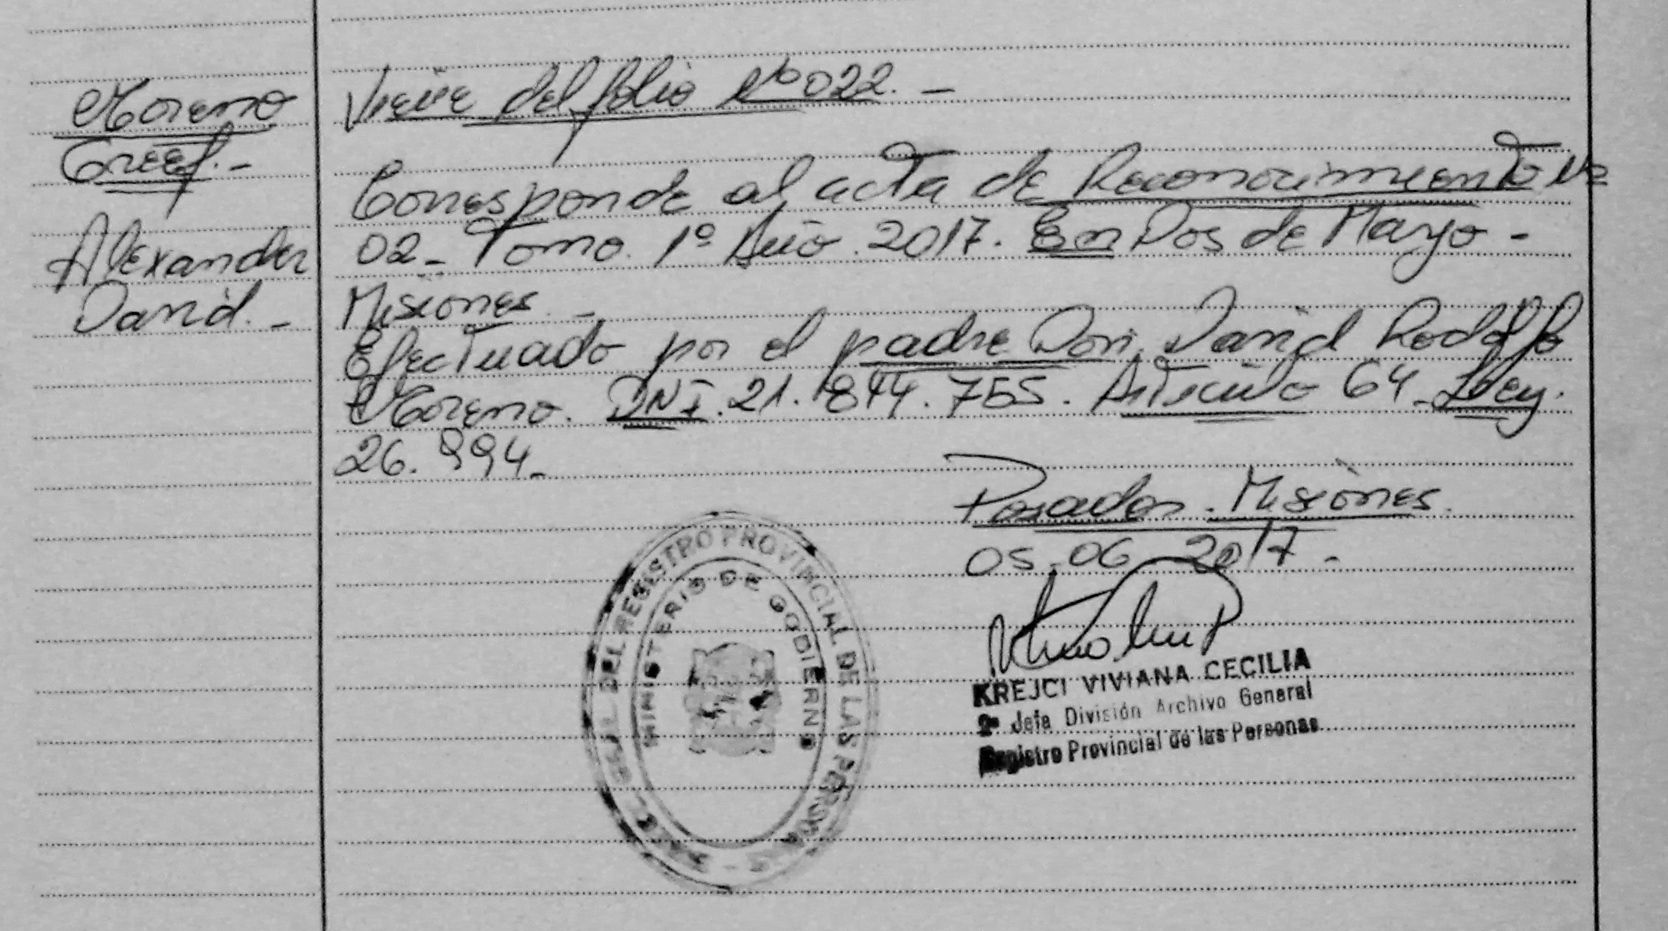 Moreno
Greef.-
Alexander
David.-
Viene del folio Nº 022.-
Corresponde al acta de Reconocimiento Nº
02- Tomo. 1º Año. 2017. En Dos de Mayo-
Misiones.-
Efectuado por el padre Don. David Rodolfo
Moreno. DNI. 21.844.755. Artículo 64. Ley.
26.994.-
Posadas. Misiones.
05-06-2017.-
DEL REGISTRO PROVINCIAL DE LAS PERSONAS
MINISTERIO DE GOBIERNO
KREJCI VIVIANA CECILIA
2ª Jefa División Archivo General
Registro Provincial de las Personas